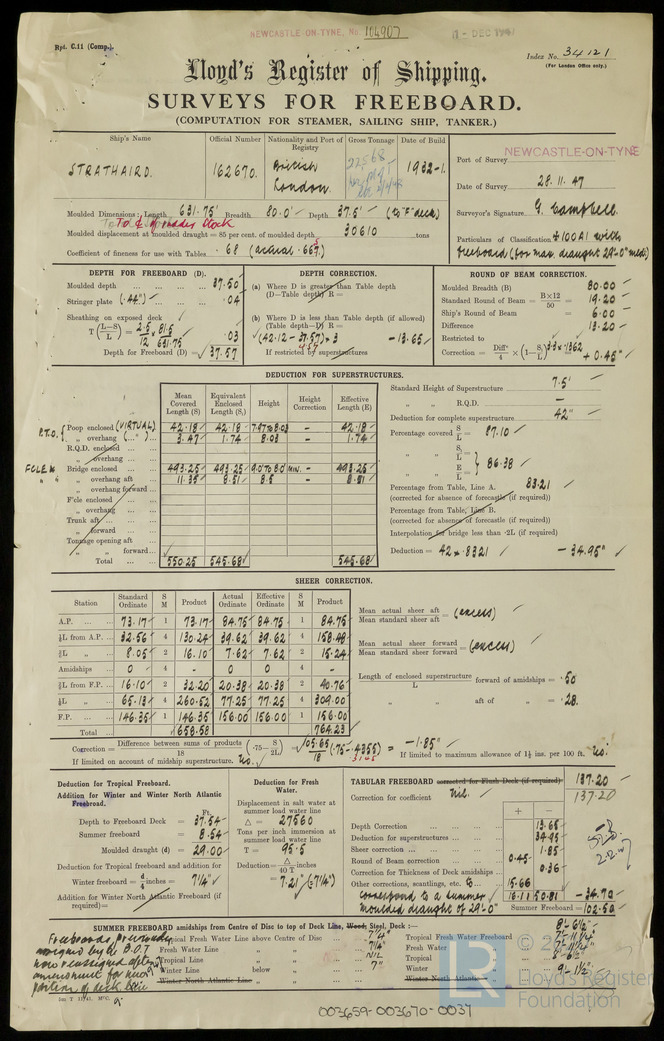 NEWCASTLE-ON-TYNE, No. 104907
DEC 1947
Rpt. C.11 (Comp.).
Index No. 34121
(For London Office only.)
Lloyd's Register of Shipping.
SURVEYS FOR FREEBOARD.
(COMPUTATION FOR STEAMER, SAILING SHIP, TANKER.)
Ship's Name Official Number Nationality and Port of Registry Gross Tonnage Date of Build
STRATHAIRD. 162670. British London. 22568 1932-1.
Port of Survey NEWCASTLE-ON-TYNE
Date of Survey 28.11.47
Surveyor's Signature G. Campbell.
Particulars of Classification +100A1 with
freeboard (for max. draught 29'-0" mld)
Moulded Dimensions: Length 631.75' Breadth 80.0' Depth 37.5' (to "F" deck)
To ₵ of rudder stock
Moulded displacement at moulded draught = 85 per cent. of moulded depth 30610 tons
Coefficient of fineness for use with Tables .68 (actual .665)
DEPTH FOR FREEBOARD (D).
Moulded depth 37.50
Stringer plate (.44") .04
Sheathing on exposed deck
T (L-S/L) = 2.5/12 × 81.5/631.75 .03
Depth for Freeboard (D) = 37.57
DEPTH CORRECTION.
(a) Where D is greater than Table depth
(D—Table depth) R =
(b) Where D is less than Table depth (if allowed)
(Table depth—D) R =
(42.12 - 37.57) × 3 - 13.65
4.57
If restricted by superstructures
ROUND OF BEAM CORRECTION.
Moulded Breadth (B) 80.00
Standard Round of Beam = B×12/50 = 19.20
Ship's Round of Beam = 6.00
Difference 13.20
Restricted to
Correction = Diff/4 × (1 - S/L) 3.3 × .1362 = + 0.45"
DEDUCTION FOR SUPERSTRUCTURES.
Mean Covered Length (S) Equivalent Enclosed Length (S₁) Height Height Correction Effective Length (E)
P.T.O. Poop enclosed (VIRTUAL) 42.18 42.18 7.97 to 8.03 - 42.18
" overhang (" ") 3.47 1.74 8.03 - 1.74
R.Q.D. enclosed
" overhang
FOLE & Bridge enclosed 493.25 493.25 9.0 to 8.0 MIN. - 493.25
" overhang aft 11.35 8.51 8.5 - 8.51
" overhang forward
F'cle enclosed
" overhang
Trunk aft
" forward
Tonnage opening aft
" " forward
Total 550.25 545.68 545.68
Standard Height of Superstructure 7.5'
" " R.Q.D. —
Deduction for complete superstructure 42"
Percentage covered S/L = 87.10
" " S₁/L =
" " E/L = 86.38
Percentage from Table, Line A. 83.21
(corrected for absence of forecastle (if required))
Percentage from Table, Line B.
(corrected for absence of forecastle (if required))
Interpolation for bridge less than ·2L (if required)
Deduction = 42 × .8321 - 34.95"
SHEER CORRECTION.
Station Standard Ordinate S M Product Actual Ordinate Effective Ordinate S M Product
A.P. 73.17 1 73.17 84.75 84.75 1 84.75
⅙L from A.P. 32.56 4 130.24 39.62 39.62 4 158.48
⅓L " 8.05 2 16.10 7.62 7.62 2 15.24
Amidships 0 4 - 0 0 4
⅓L from F.P. 16.10 2 32.20 20.38 20.38 2 40.76
⅙L " 65.13 4 260.52 77.25 77.25 4 309.00
F.P. 146.35 1 146.35 156.00 156.00 1 156.00
Total 658.58 764.23
Mean actual sheer aft / Mean standard sheer aft = (excess)
Mean actual sheer forward / Mean standard sheer forward = (excess)
Length of enclosed superstructure / L forward of amidships = .50
" aft of " = .28
Correction = Difference between sums of products / 18 (·75 - S/2L) = 105.65/18 (.75 - .4355) = -1.85"
.3145
If limited on account of midship superstructure. No.
If limited to maximum allowance of 1½ ins. per 100 ft. No.
Deduction for Tropical Freeboard.
Addition for Winter and Winter North Atlantic Freeboard.
Ft.
Depth to Freeboard Deck = 37.54
Summer freeboard = 8.54
Moulded draught (d) = 29.00
Deduction for Tropical freeboard and addition for
Winter freeboard = d/4 inches = 7¼"
Addition for Winter North Atlantic Freeboard (if required) =
Deduction for Fresh Water.
Displacement in salt water at summer load water line
Δ = 27560
Tons per inch immersion at summer load water line
T = 95.5
Deduction = Δ/40 T inches
= 7.21" (=7¼")
TABULAR FREEBOARD corrected for Flush Deck (if required) 137.20
Correction for coefficient Nil. 137.20
+ −
Depth Correction 13.65
Deduction for superstructures 34.95
Sheer correction 1.85
Round of Beam correction 0.45
Correction for Thickness of Deck amidships 0.36
Other corrections, scantlings, etc. To 15.66
correspond to a summer 16.11 50.81 - 34.70
moulded draught of 29'-0" Summer Freeboard = 102.50
SUMMER FREEBOARD amidships from Centre of Disc to top of Deck Line, Wood, Steel, Deck :— 8'-6½"
Tropical Fresh Water Line above Centre of Disc
Fresh Water Line " " 7¼"
Tropical Line " " NIL
Winter Line below " 7"
Winter North Atlantic Line " "
Tropical Fresh Water Freeboard
Fresh Water "
Tropical " 8'-6½"
Winter " 9'-1½"
Winter North Atlantic "
Freeboards previously
assigned by B.O.T
now reassigned after
amendment for new
position of deck line
© 2
Lloyd's Register
Foundation
LR
003659-003670-0037